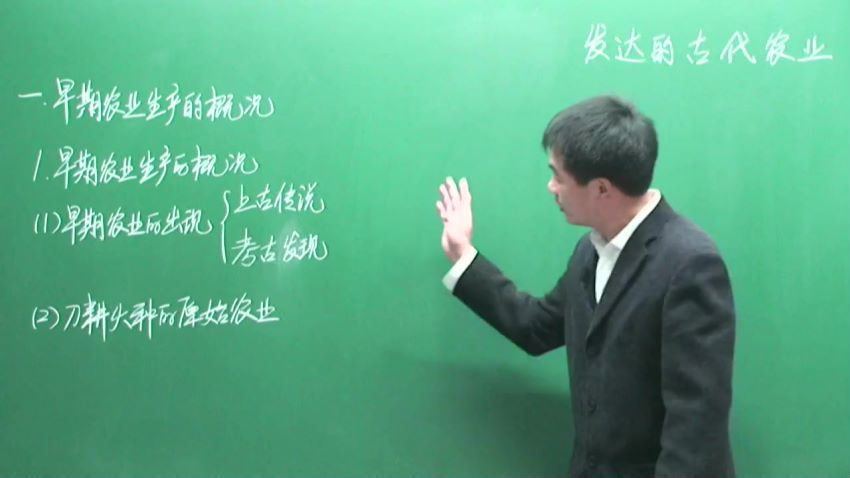 发达的古代农业
一.早期农业生产的概况
1.早期农业生产的概况
(1)早期农业的出现{上古传说
考古发现
(2)刀耕火种的原始农业